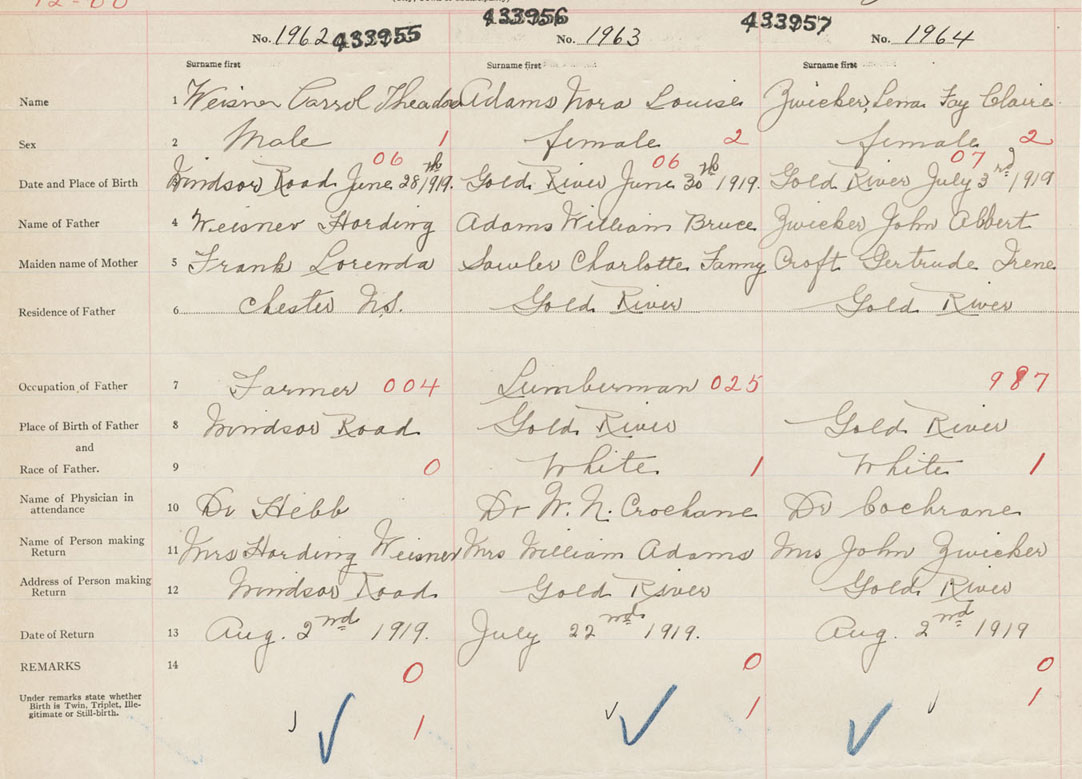 433956 433957
No. 1962 433955 No. 1963 No. 1964
Surname first Surname first Surname first
Name 1 Weisner Carrol Theador Adams Nora Louise Zwicker, Lena Fay Claire
Sex 2 Male 1 female 2 female 2
06 06 07
Date and Place of Birth 3 Windsor Road June 28th 1919. Gold River June 30th 1919. Gold River July 3rd 1919
Name of Father 4 Weisner Harding Adams William Bruce Zwicker John Albert
Maiden name of Mother 5 Frank Lorenda Sawler Charlotte Fanny Croft Gertrude Irene
Residence of Father 6 Chester N.S. Gold River Gold River
Occupation of Father 7 Farmer 004 Lumberman 025 987
Place of Birth of Father 8 Windsor Road Gold River Gold River
and
Race of Father. 9 0 White 1 White 1
Name of Physician in
attendance 10 Dr Hebb Dr W. N. Crochane Dr Cochrane
Name of Person making
Return 11 Mrs Harding Weisner Mrs William Adams Mrs John Zwicker
Address of Person making
Return 12 Windsor Road Gold River Gold River
Date of Return 13 Aug. 2nd 1919. July 22nd 1919. Aug. 2nd 1919
REMARKS 14 0 0 0
Under remarks state whether
Birth is Twin, Triplet, Ille-
gitimate or Still-birth. 1 1 1